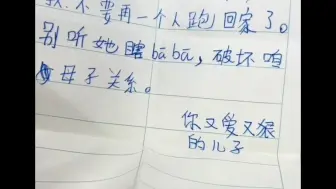 不要再一个人跑回家了。
别听她瞎bābā,破坏咱
母子关系。
你又爱又狠
的儿子